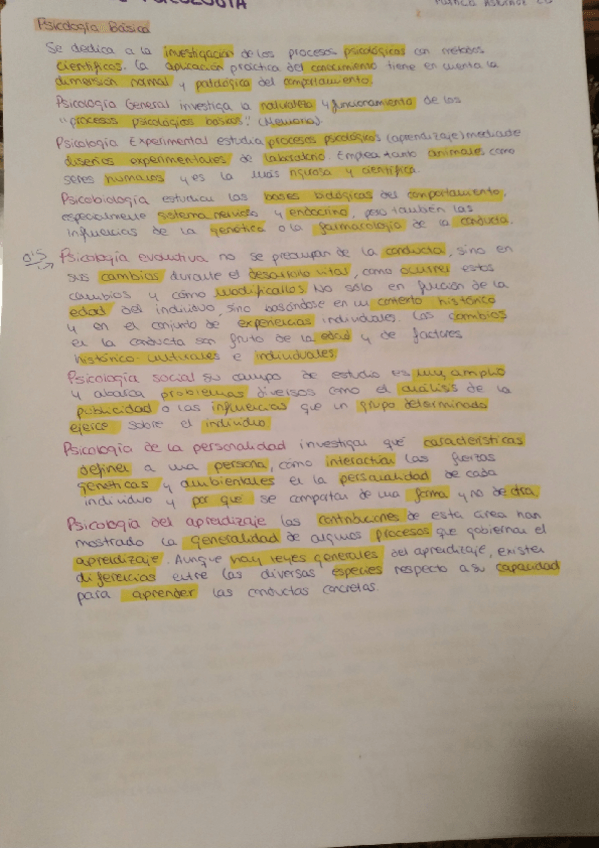 PSICOLOGÍA
Psicología Básica
Se dedica a la investigación de los procesos psicológicos con métodos
científicos. La aplicación práctica del conocimiento tiene en cuenta la
dimensión normal y patológica del comportamiento.
Psicología General investiga la naturaleza y funcionamiento de los
"procesos psicológicos básicos". (Memoria).
Psicología Experimental estudia procesos psicológicos (aprendizaje) mediante
diseños experimentales de laboratorio. Emplea tanto animales como
seres humanos y es la más rigurosa y científica.
Psicobiología estudian las bases biológicas del comportamiento,
especialmente sistema nervioso y endocrino, pero también las
influencias de la genética o la farmacología de la conducta.
Psicología evolutiva no se preocupan de la conducta, sino en
sus cambios durante el desarrollo vital, como ocurren estos
cambios y cómo modificarlos. No sólo en función de la
edad del individuo, sino basándose en un contexto histórico
y en el conjunto de experiencias individuales. Los cambios
en la conducta son fruto de la edad y de factores
histórico-culturales e individuales
Psicología social su campo de estudio es muy amplio
y abarca problemas diversos como el análisis de la
publicidad o las influencias que un grupo determinado
ejerce sobre el individuo
Psicología de la personalidad investigan qué características
definen a una persona, cómo interactúan las fuerzas
genéticas y ambientales en la personalidad de cada
individuo y por qué se comportan de una forma y no de otra.
Psicología del aprendizaje las contribuciones de esta área han
mostrado la generalidad de algunos procesos que gobiernan el
aprendizaje. Aunque hay leyes generales del aprendizaje, existen
diferencias entre las diversas especies respecto a su capacidad
para aprender las conductas concretas.